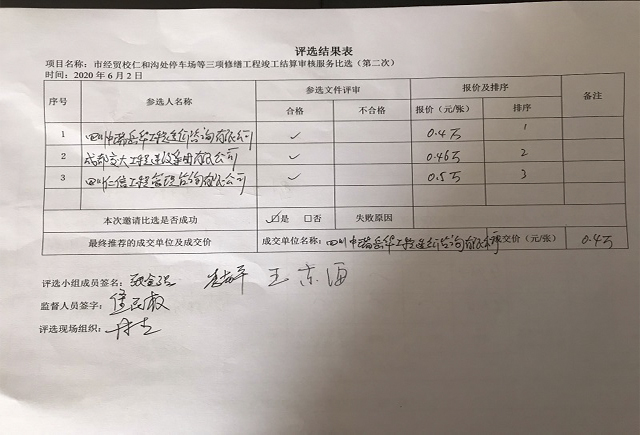 评选结果表
项目名称：市经贸校仁和沟处停车场等三项修缮工程竣工结算审核服务比选（第二次）
时间：2020年6月2日
序号 参选人名称 参选文件评审 报价及排序 备注
合格 不合格 报价（元/张） 排序
1 四川中瑞岳华工程造价咨询有限公司 ✓ 0.4万 1
2 成都交大工程建设集团有限公司 ✓ 0.46万 2
3 四川仁信工程管理咨询有限公司 ✓ 0.5万 3
本次邀请比选是否成功 ☑是 □否 失败原因
最终推荐的成交单位及成交价 成交单位名称：四川中瑞岳华工程造价咨询有限公司 成交价（元/张） 0.4万
评选小组成员签名：
监督人员签字：
评选现场组织：